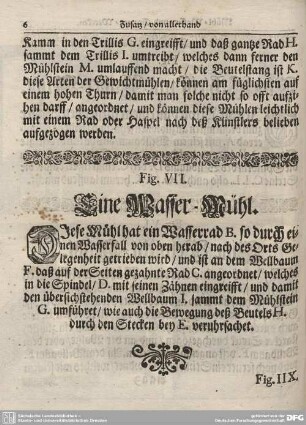 6 Zusatz / von allerhand
Kamm in den Trillis G. eingreifft / und daß gantze Rad H.
sammt dem Trillis I. umtreibt / welches dann ferner den
Mühlstein M. umlauffend macht / die Beutelstang ist K.
diese Arten der Gewichtmühlen / können am füglichsten auf
einem hohen Thurn / damit man solche nicht so offt aufzie-
hen darff / angeordnet / und können diese Mühlen leichtlich
mit einem Rad oder Haspel nach deß Künstlers belieben
aufgezogen werden.
Fig. VII.
Eine Wasser-Mühl.
DIese Mühl hat ein Wasserrad B. so durch ei-
nen Wasserfall von oben herab / nach des Orts Ge-
legenheit getrieben wird / und ist an dem Wellbaum
F. daß auf der Seiten gezahnte Rad C. angeordnet / welches
in die Spindel / D. mit seinen Zähnen eingreifft / und damit
den übersichstehenden Wellbaum I. sammt dem Mühlstein
G. umführet / wie auch die Bewegung deß Beutels H.
durch den Stecken bey E. veruhrsachet.
Fig. IIX.